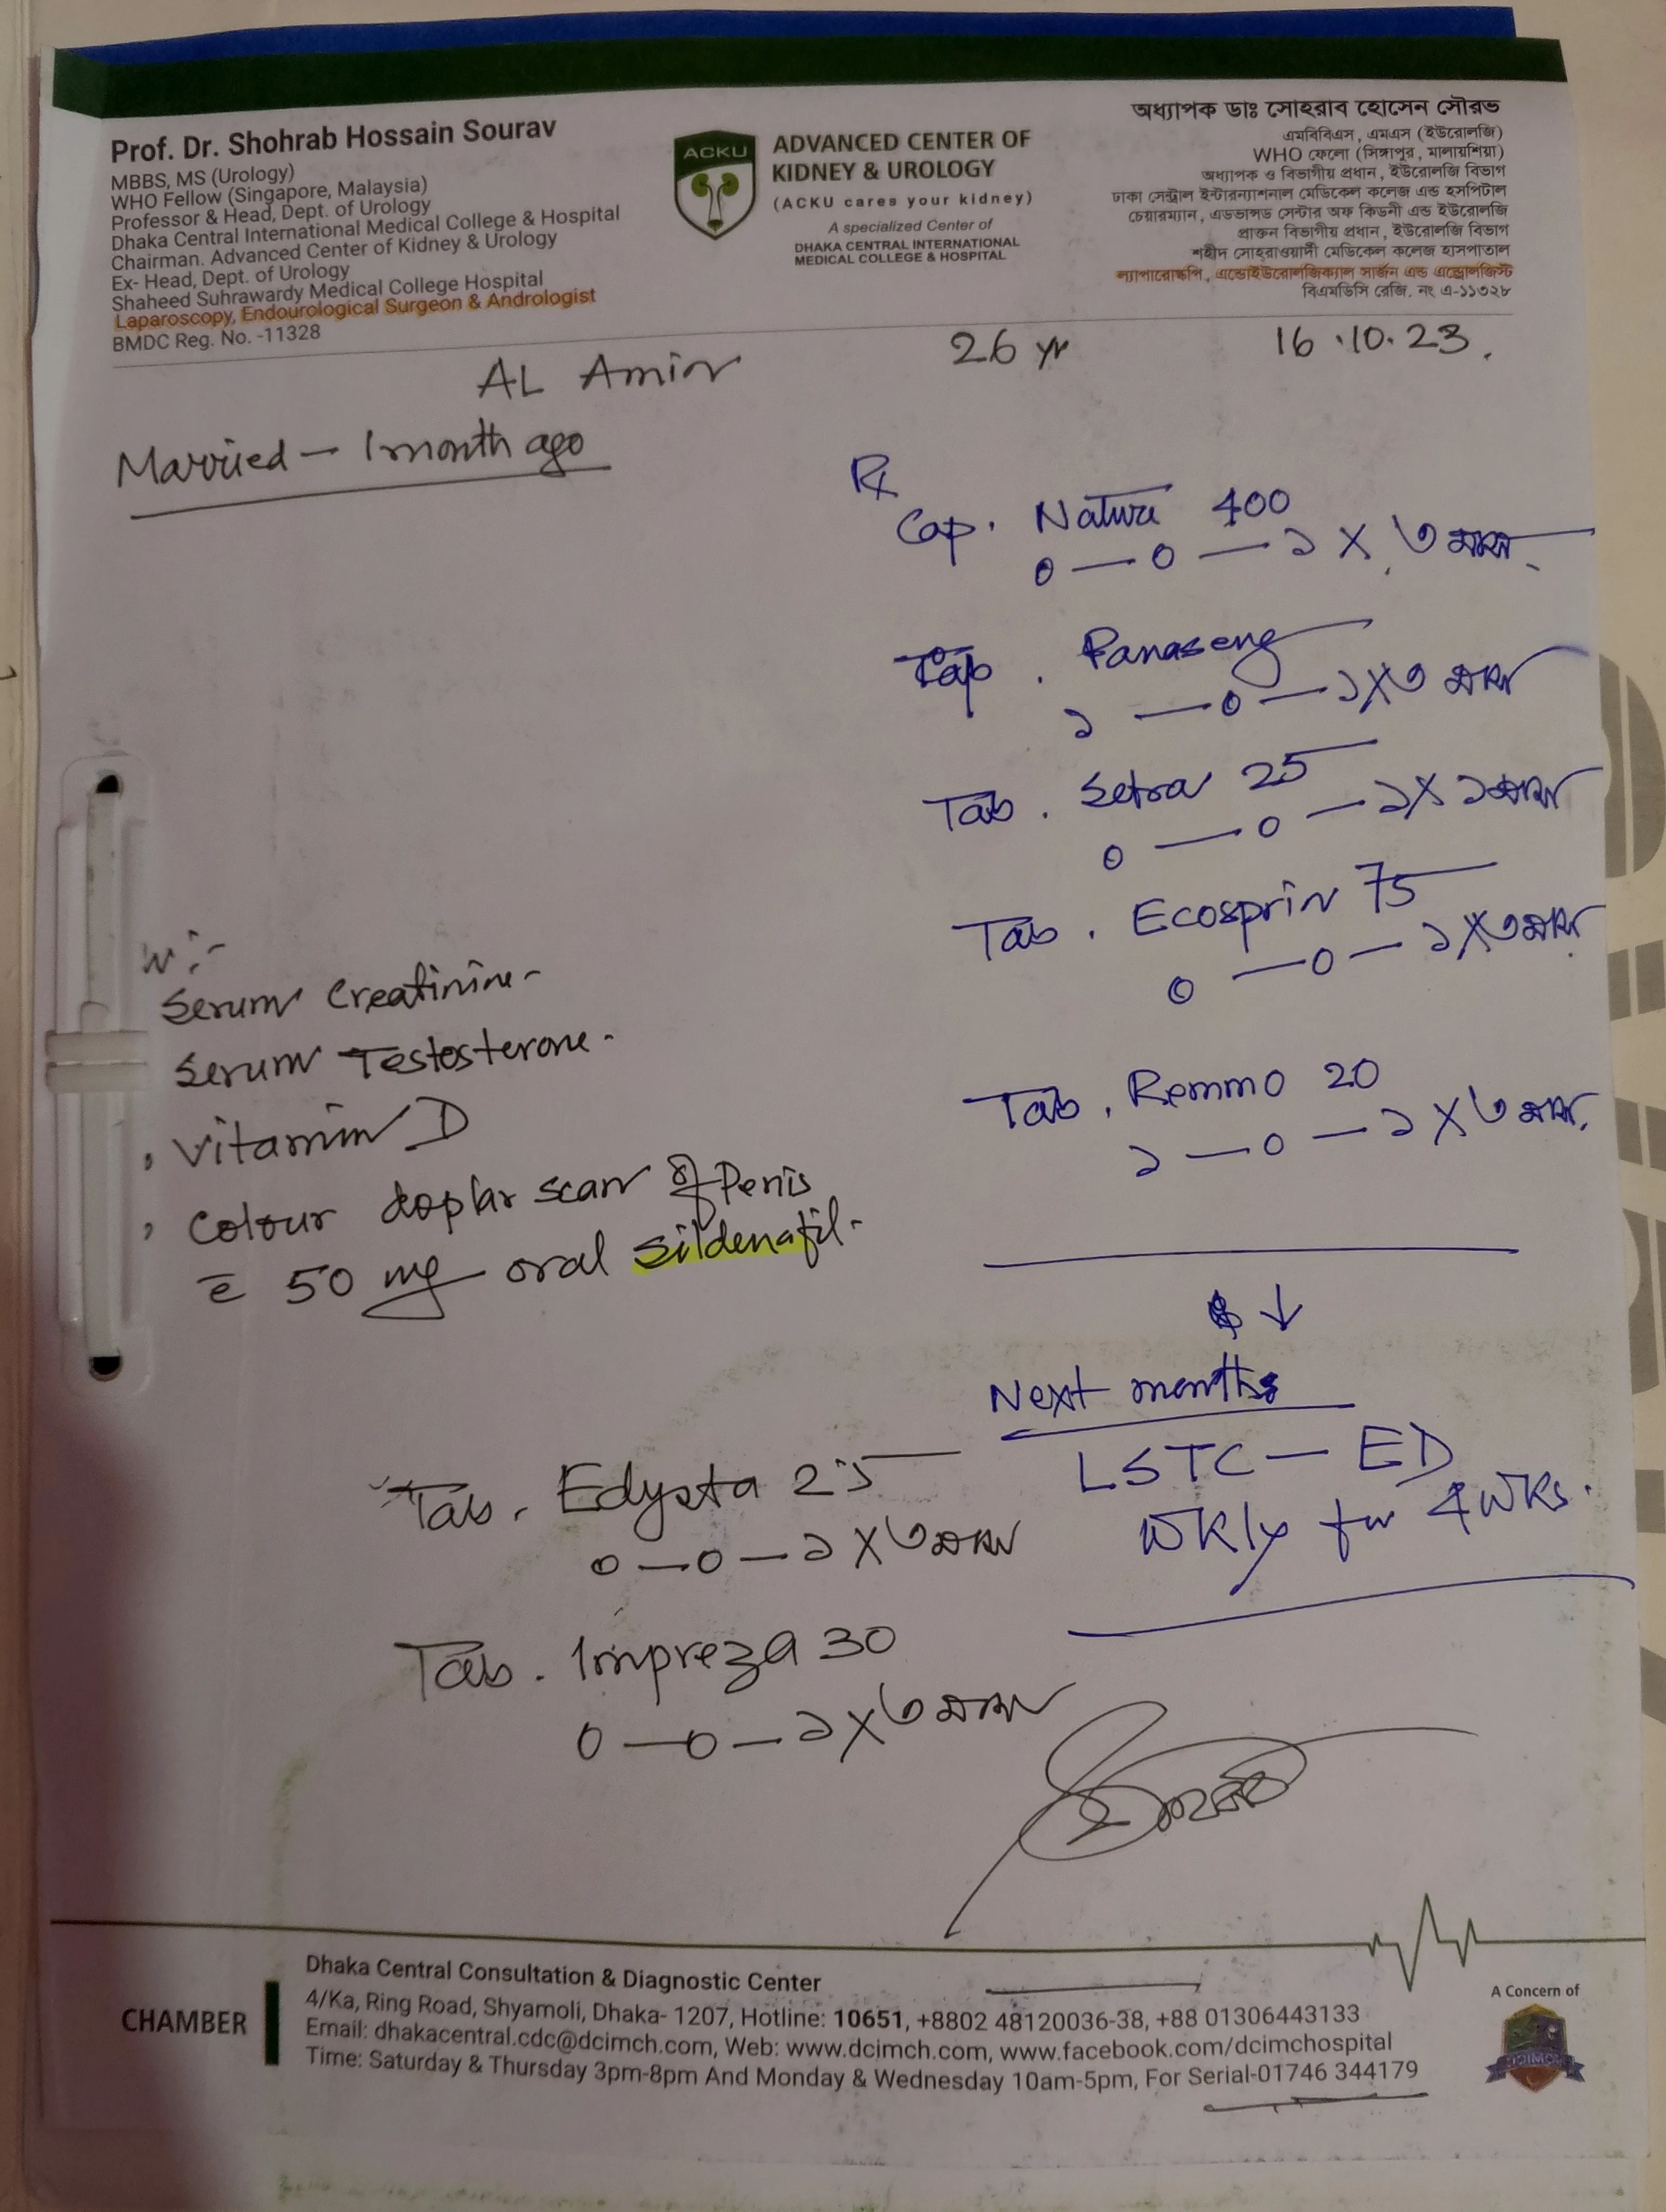 Prof. Dr. Shohrab Hossain Sourav
MBBS, MS (Urology)
WHO Fellow (Singapore, Malaysia)
Professor & Head, Dept. of Urology
Dhaka Central International Medical College & Hospital
Chairman. Advanced Center of Kidney & Urology
Ex- Head, Dept. of Urology
Shaheed Suhrawardy Medical College Hospital
Laparoscopy, Endourological Surgeon & Andrologist
BMDC Reg. No. -11328
ACKU
ADVANCED CENTER OF
KIDNEY & UROLOGY
(ACKU cares your kidney)
A specialized Center of
DHAKA CENTRAL INTERNATIONAL
MEDICAL COLLEGE & HOSPITAL
অধ্যাপক ডাঃ সোহরাব হোসেন সৌরভ
এমবিবিএস, এমএস (ইউরোলজি)
WHO ফেলো (সিঙ্গাপুর, মালায়শিয়া)
অধ্যাপক ও বিভাগীয় প্রধান, ইউরোলজি বিভাগ
ঢাকা সেন্ট্রাল ইন্টারন্যাশনাল মেডিকেল কলেজ এন্ড হসপিটাল
চেয়ারম্যান, এডভান্সড সেন্টার অফ কিডনী এন্ড ইউরোলজি
প্রাক্তন বিভাগীয় প্রধান, ইউরোলজি বিভাগ
শহীদ সোহরাওয়ার্দী মেডিকেল কলেজ হাসপাতাল
ল্যাপারোস্কপি, এন্ডোইউরোলজিক্যাল সার্জন এন্ড এন্ড্রোলজিস্ট
বিএমডিসি রেজি. নং এ-১১৩২৮
AL Amin 26 yr 16.10.23.
Married - 1 month ago
Rx
Cap. Natura 400
0 — 0 — ১ X ৩ মাস
Tab. Panaseng
১ — 0 — ১ X ৩ মাস
Tab. Setra 25
0 — 0 — ১ X ১ মাস
Tab. Ecosprin 75
0 — 0 — ১ X ৩ মাস
Tab. Remmo 20
১ — 0 — ১ X ৩ মাস
Serum Creatinine-
Serum Testosterone.
, Vitamin D
, Colour doplar scan of Penis
c̄ 50 mg oral sildenafil.
↓
Next months
LSTC — ED
Wkly for 4 wks.
Tab. Edysta 25
0 — 0 — ১ X ৩ মাস
Tab. Impreza 30
0 — 0 — ১ X ৩ মাস
CHAMBER
Dhaka Central Consultation & Diagnostic Center
4/Ka, Ring Road, Shyamoli, Dhaka- 1207, Hotline: 10651, +8802 48120036-38, +88 01306443133
Email: dhakacentral.cdc@dcimch.com, Web: www.dcimch.com, www.facebook.com/dcimchospital
Time: Saturday & Thursday 3pm-8pm And Monday & Wednesday 10am-5pm, For Serial-01746 344179
A Concern of
DCIMCH